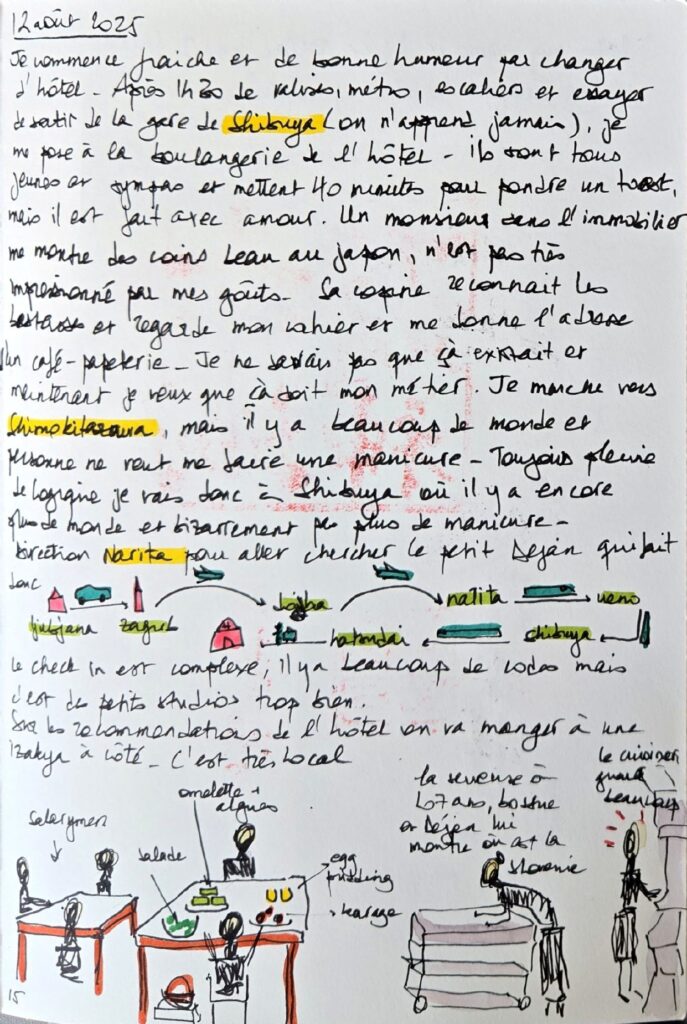 12 août 2025
Je commence fraiche et de bonne humeur par changer
d'hôtel - Après 1h20 de valises, métro, escaliers et essayer
de sortir de la gare de Shibuya (on n'apprend jamais), je
me pose à la boulangerie de l'hôtel - ils sont tous
jeunes et sympas et mettent 40 minutes pour pondre un toast,
mais il est fait avec amour. Un monsieur dans l'immobilier
me montre des coins beau au japon, n'est pas très
impressionné par mes goûts - Sa copine reconnait les
et regarde mon cahier et me donne l'adresse
d'un café-papeterie - Je ne savais pas que çà existait et
maintenant je veux que çà soit mon métier. Je marche vers
Shimokitazawa, mais il y a beaucoup de monde et
personne ne veut me faire une manicure - Toujours pleine
de logique je vais donc à Shibuya où il y a encore
plus de monde et bizarrement pas plus de manicure -
Direction Narita pour aller chercher le petit Dejan qui fait
donc
ljubjana zagreb narita ueno
shibuya
le check in est complexe, il y a beaucoup de codes mais
c'est des petits studios trop bien.
Sur les recommendations de l'hôtel on va manger à une
izakya à côté - C'est très local
salarymen
omelette +
algues
salade
egg
pudding
karage
la serveuse à
107 ans, bossue
et Dejan lui
montre où est la
Slovenie
le cuisinier
beaucoup
15